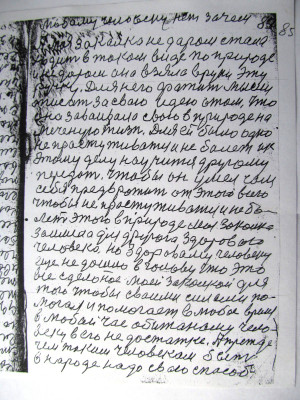 любому человеку нет зачем 85
Моя закалка не даром стала
ходит в таком виде по природе
и не даром она взяла в руки эту
ручку. Для него тратит мысли
пишет за свою идею о том что
оно завоевала свого в природе на
Для ей было одно
не простуживатися не болеть и к
этому делу научится другому
передат. Чтобы он умел чем
себя предвратит от этого всего
чтобы не простуживатися и не бо-
лет этого в природе моя закалка
зашла для другого здорового
человека но здоровому человеку
ище не дошло в голову что это
все сделоное моей закалкой для
того чтобы своими силами по-
могал и помогает в любое время
в любой час обиженому чело-
веку в его недостатке. А прежде
чем таким человекам в свет
в народе надо свого способ